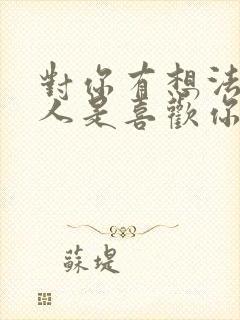 對你有想法
人是喜歡你
蘇堤